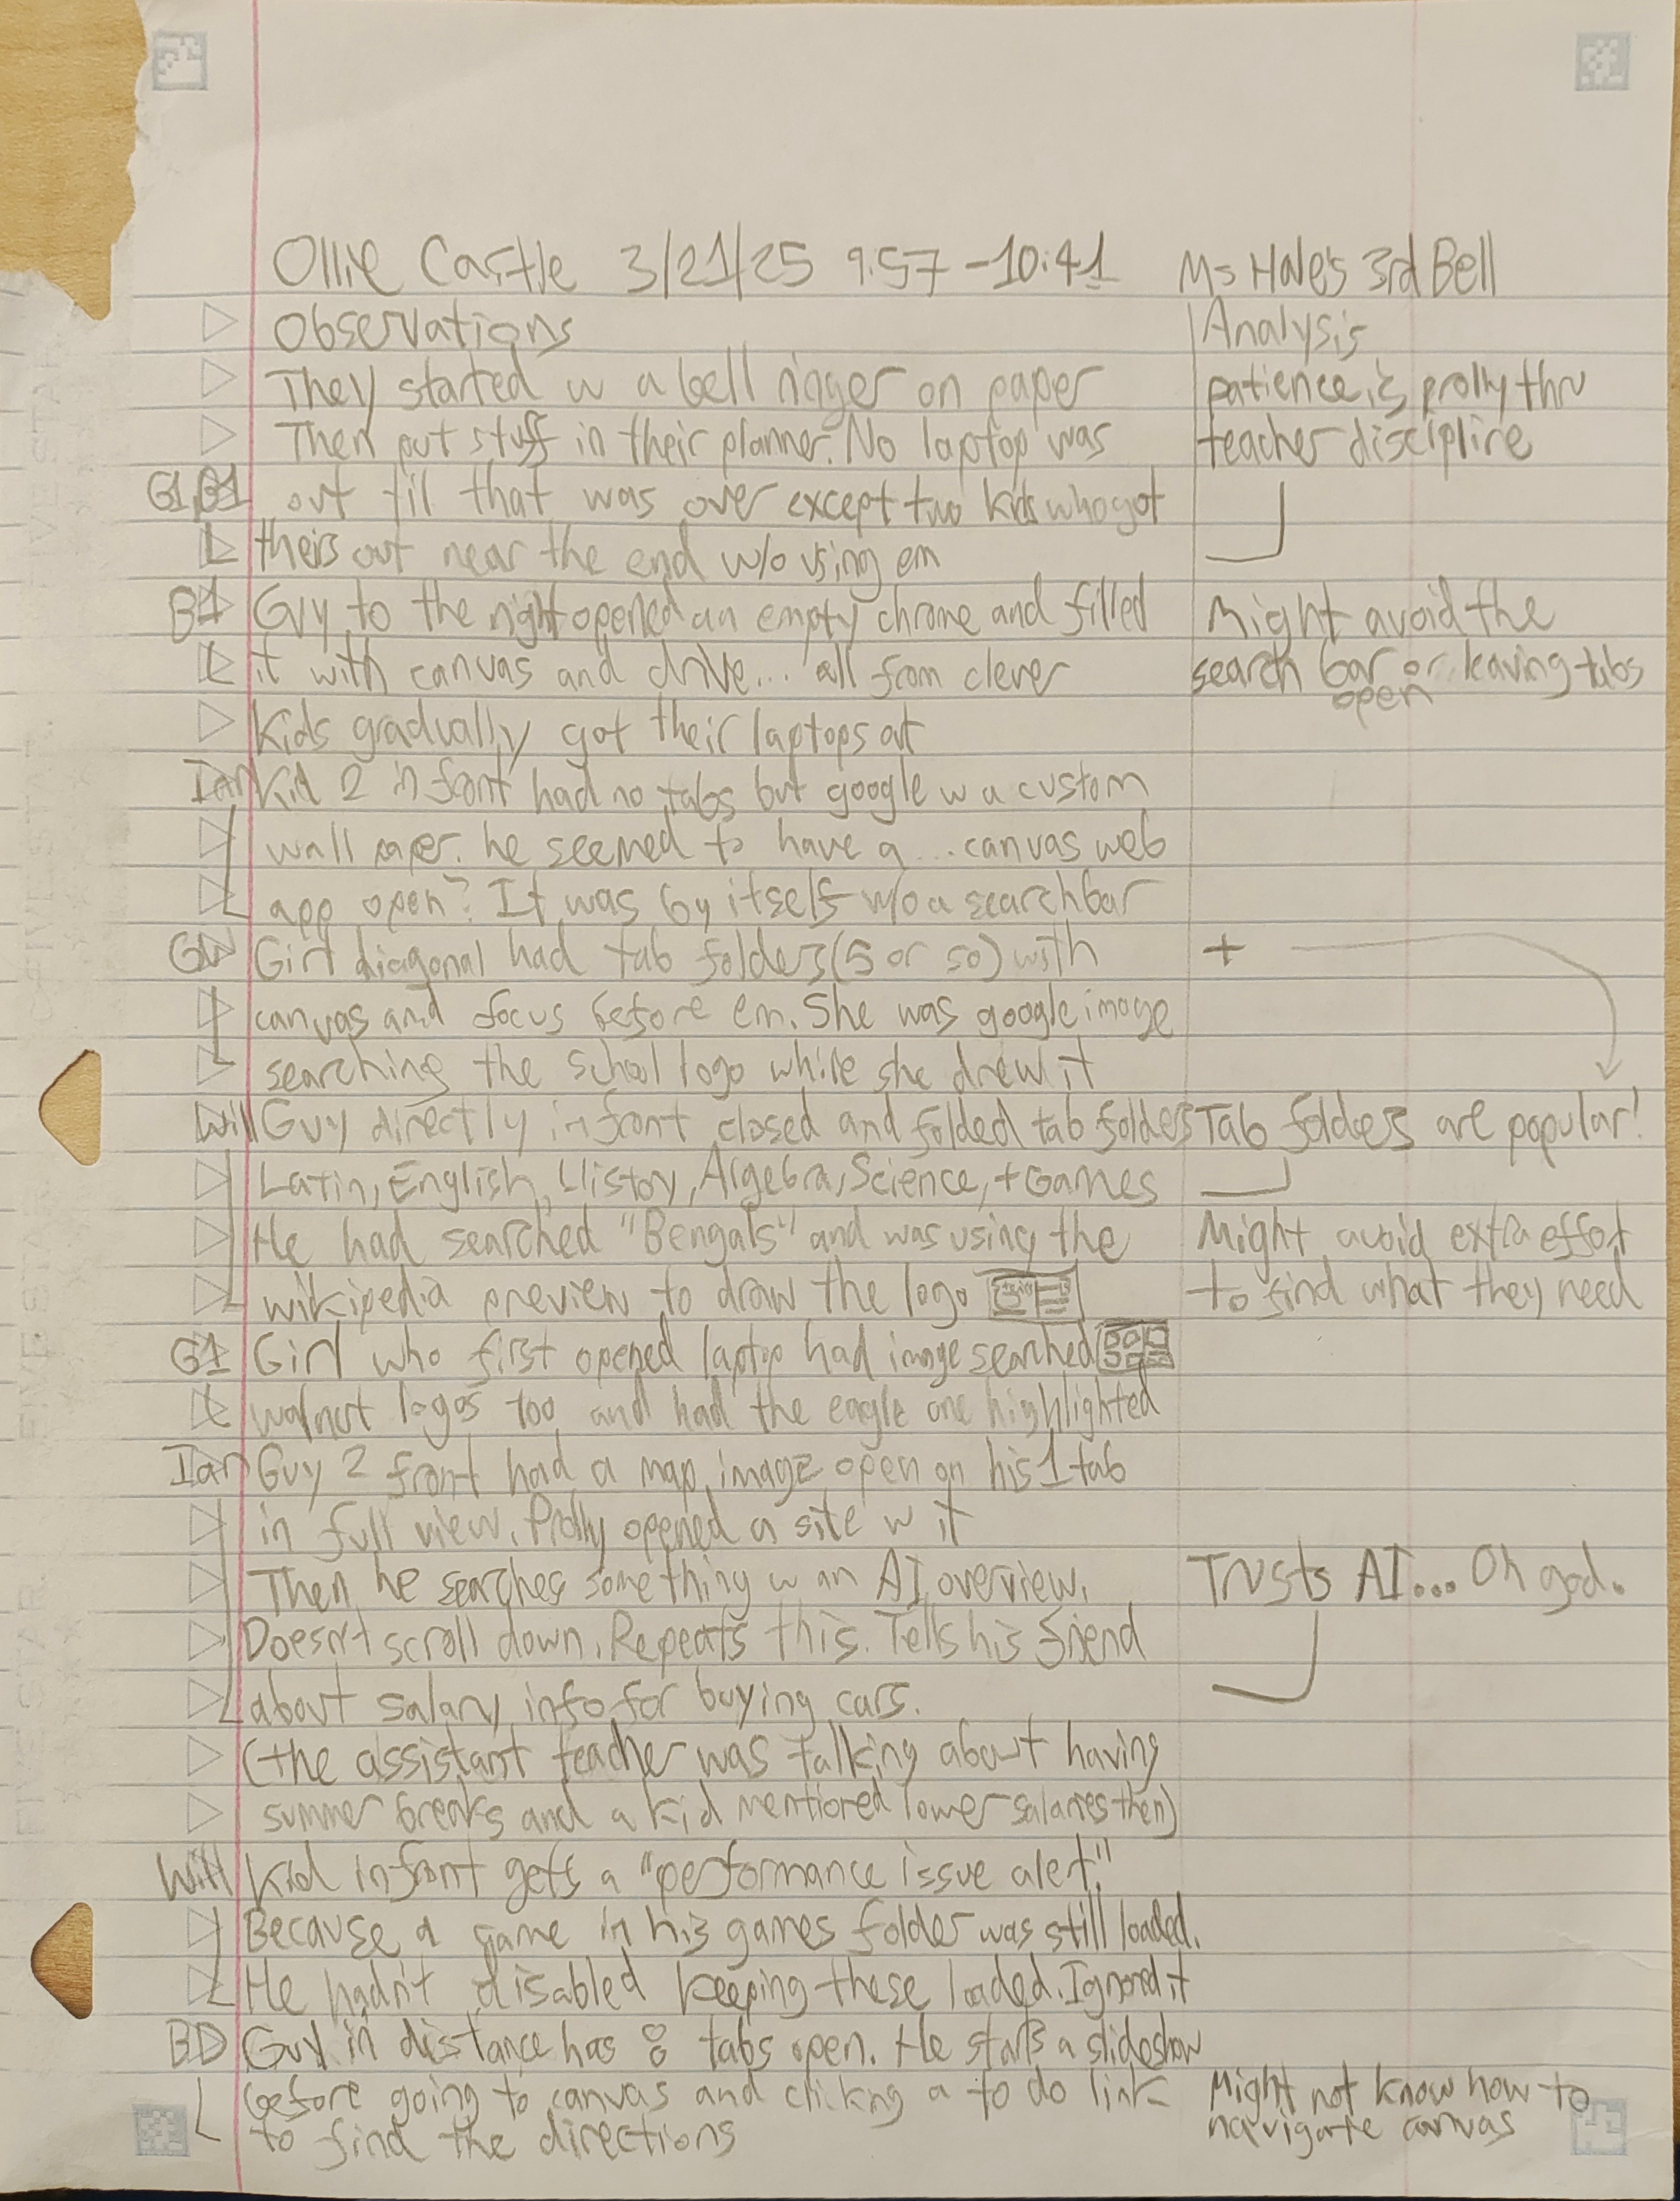 Ollie Castle 3/21/25 9:57-10:41 Ms Hale's 3rd Bell
Observations
Analysis
They started w a bell ringer on paper
patience is prolly thru
Then put stuff in their planner. No laptop was
teacher discipline
G1, B1 out til that was over except two kids who got
theirs out near the end w/o using em
B1 Guy to the right opened an empty chrome and filled
Might avoid the
it with canvas and drive... all from clever
search bar or leaving tabs
open
Kids gradually got their laptops out
Ian Kid 2 in front had no tabs but google w a custom
wall paper. he seemed to have a ... canvas web
app open? It was by itself w/o a searchbar
Girl diagonal had tab folders (5 or so) with
+
canvas and focus before em. She was google image
searching the school logo while she drew it
Will Guy directly in front closed and folded tab folders
Tab folders are popular!
Latin, English, History, Algebra, Science, + Games
He had searched "Bengals" and was using the
Might avoid extra effort
wikipedia preview to draw the logo
to find what they need
G1 Girl who first opened laptop had image searched
walnut logos too and had the eagle one highlighted
Ian Guy 2 front had a map image open on his 1 tab
in full view. Prolly opened a site w it
Then he searches something w an AI overview.
Trusts AI... Oh god.
Doesn't scroll down. Repeats this. Tells his friend
about salary info for buying cars.
(the assistant teacher was talking about having
summer breaks and a kid mentioned lower salaries then)
Will Kid in front gets a "performance issue alert."
Because a game in his games folder was still loaded.
He hadn't disabled keeping these loaded. Ignored it
BD Guy in distance has 8 tabs open. He starts a slideshow
before going to canvas and clicking a to do link
Might not know how to
to find the directions
navigate canvas